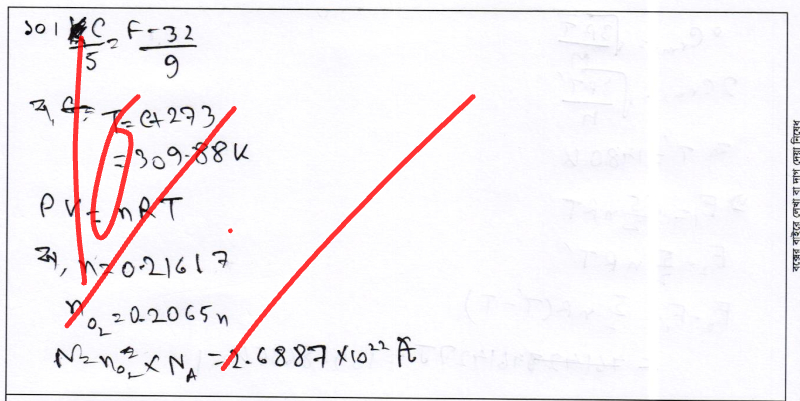 ১০। C/5 = F-32/9
বা, T = C+273
= 309.88 K
PV = nRT
বা, n = 0.21617
n_O₂ = 0.2065n
N = n_O₂ × N_A = 2.6887 × 10²² টি
বক্সের বাইরে লেখা বা দাগ দেয়া নিষেধ